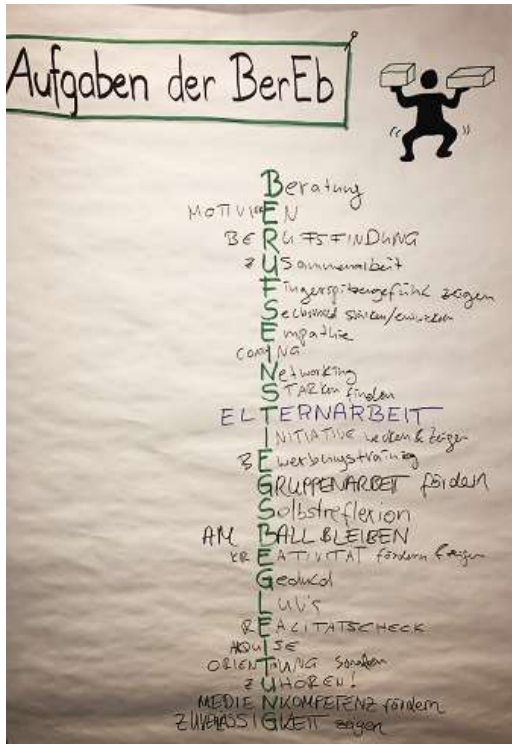 Aufgaben der BerEb
Beratung
MOTIVIEREN
BERUFSFINDUNG
ZUSammenarbeit
Fingerspitzengefühl zeigen
Selbstwert stärken/entwickeln
Empathie
COACHING
Networking
STÄRKEN finden
ELTERNARBEIT
INITIATIVE wecken & zeigen
BEwerbungstraining
GRUPPENARBEIT fördern
Selbstreflexion
AM BALL BLEIBEN
KREATIVITÄT fördern & zeigen
Geduld
LUV's
REALITÄTSCHECK
AQUISE
ORIENTIERUNG
ZUHÖREN!
MEDIENKOMPETENZ fördern
ZUVERLÄSSIGKEIT zeigen